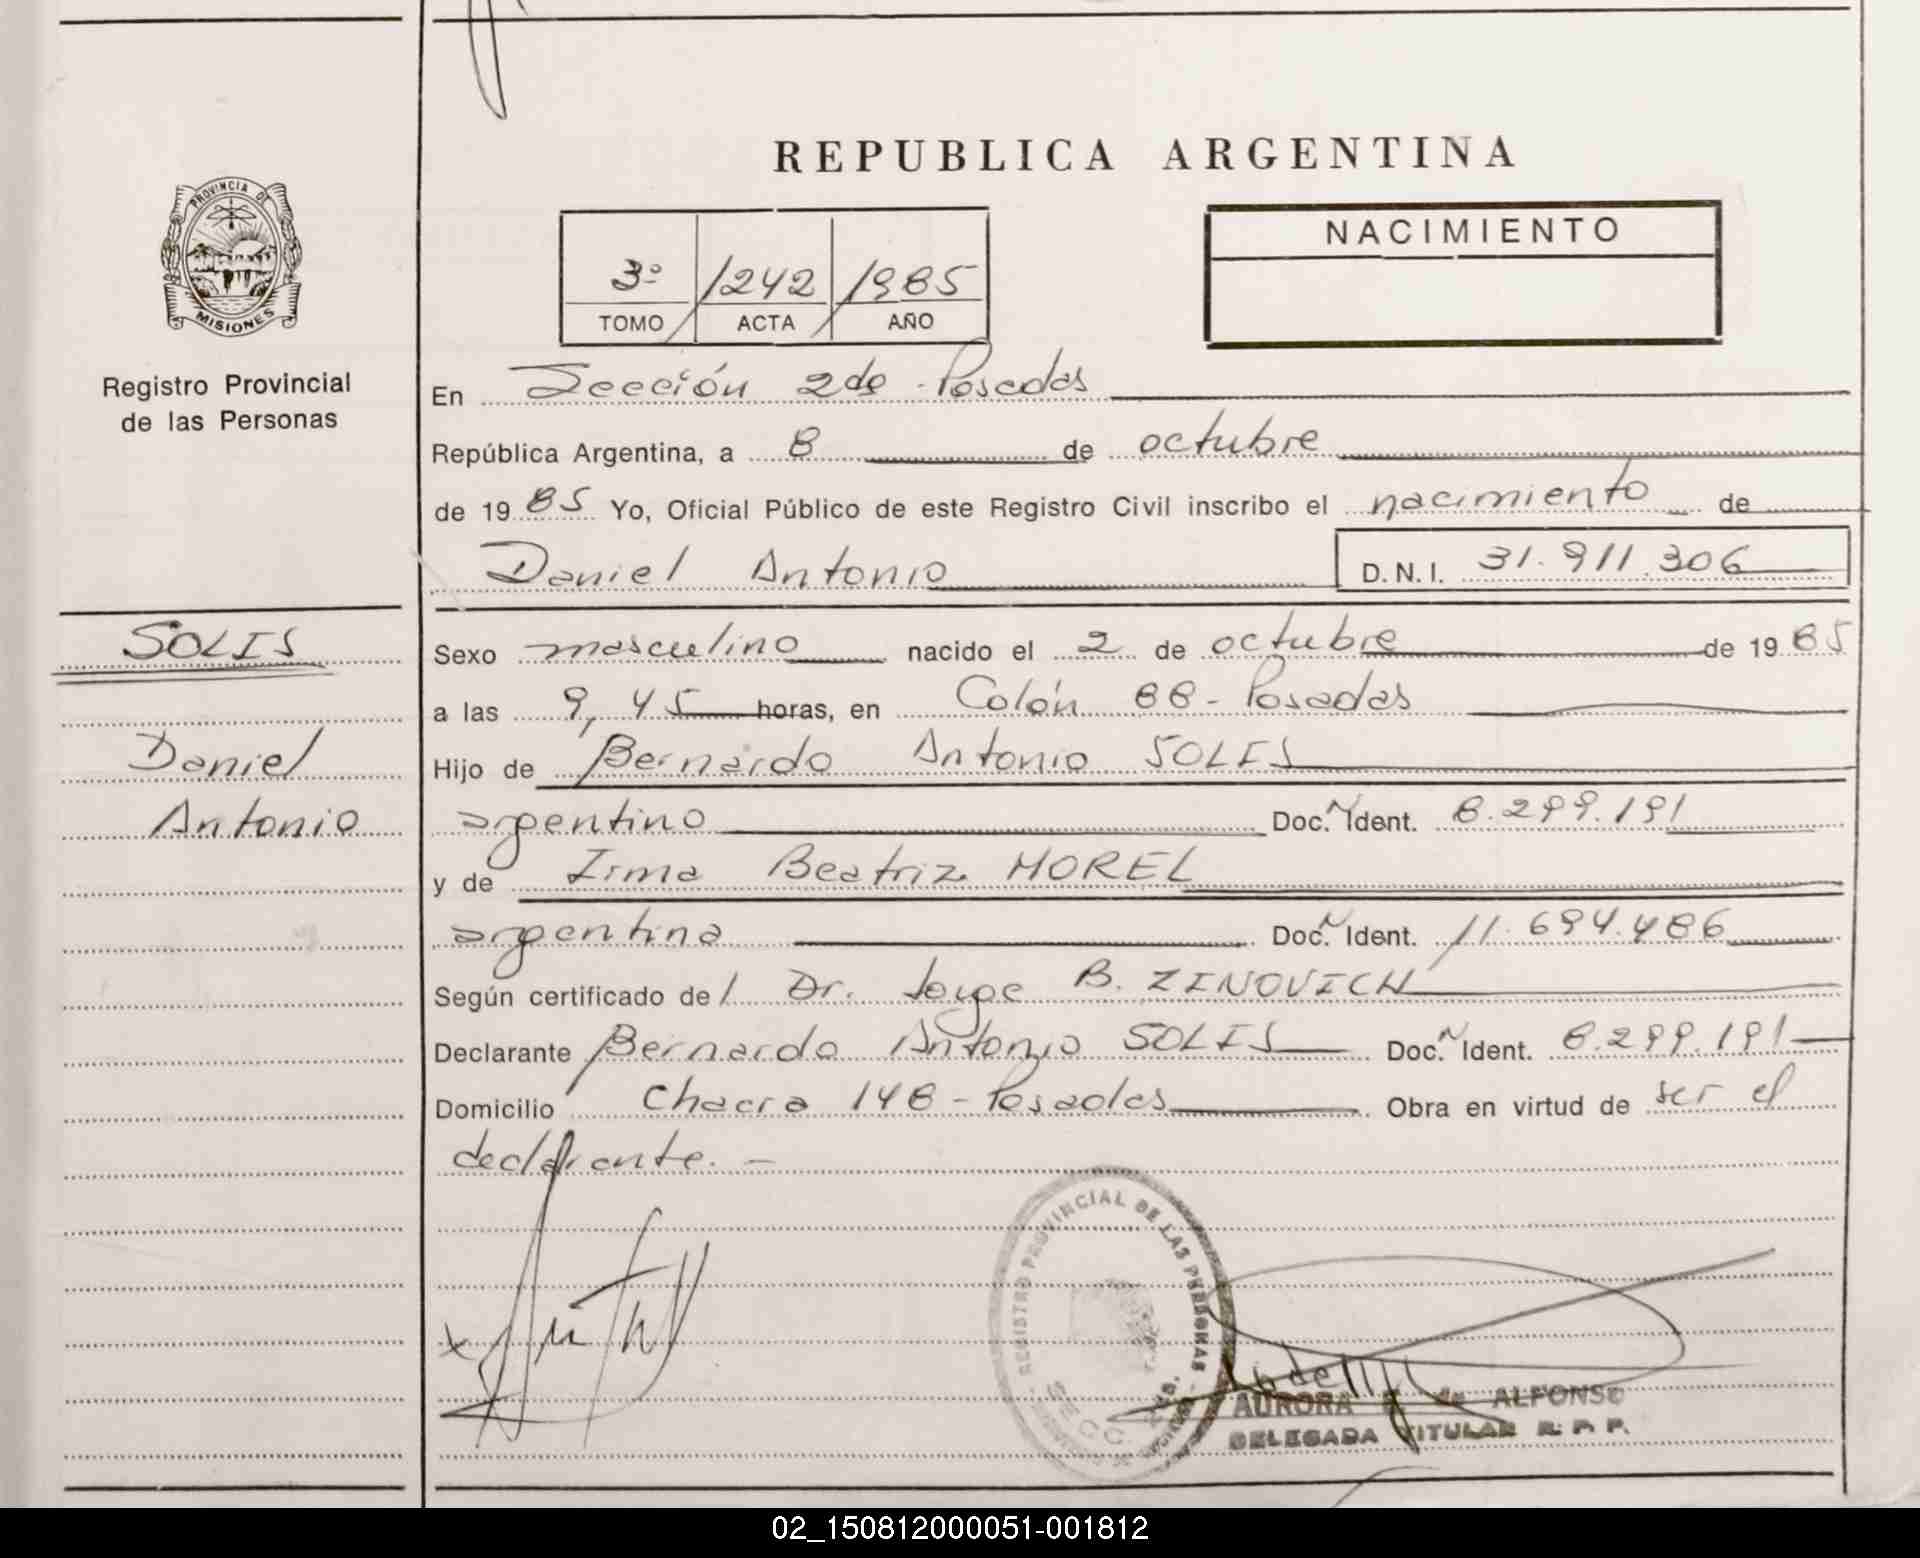 REPUBLICA ARGENTINA
PROVINCIA DE
MISIONES
Registro Provincial
de las Personas
3º 1242 1985
TOMO ACTA AÑO
NACIMIENTO
En Sección 2da - Posadas
República Argentina, a 8 de octubre
de 19 85 Yo, Oficial Público de este Registro Civil inscribo el nacimiento de
Daniel Antonio D.N.I. 31.911.306
SOLIS
Daniel
Antonio
Sexo masculino nacido el 2 de octubre de 19 85
a las 9,45 horas, en Colón 88 - Posadas
Hijo de Bernardo Antonio SOLIS
argentino Doc. Ident. 8.299.191
y de Irma Beatriz MOREL
argentina Doc. Ident. 11.694.486
Según certificado del Dr. Jorge B. ZINOVICH
Declarante Bernardo Antonio SOLIS Doc. Ident. 8.299.191
Domicilio Chacra 148 - Posadas Obra en virtud de ser el
declarante. -
REGISTRO PROVINCIAL DE LAS PERSONAS
SECC.
AURORA de ALFONSO
DELEGADA TITULAR R. P. P.
02_150812000051-001812